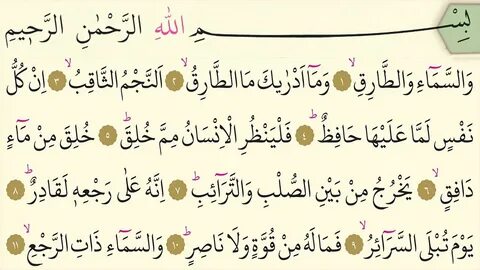 بِسْمِ اللّٰهِ الرَّحْمٰنِ الرَّحٖيمِ
وَالسَّمَٓاءِ وَالطَّارِقِۙ ﴿١﴾ وَمَٓا اَدْرٰيكَ مَا الطَّارِقُۙ ﴿٢﴾ اَلنَّجْمُ الثَّاقِبُۙ ﴿٣﴾ اِنْ كُلُّ
نَفْسٍ لَمَّا عَلَيْهَا حَافِظٌؕ ﴿٤﴾ فَلْيَنْظُرِ الْاِنْسَانُ مِمَّ خُلِقَؕ ﴿٥﴾ خُلِقَ مِنْ مَٓاءٍ
دَافِقٍۙ ﴿٦﴾ يَخْرُجُ مِنْ بَيْنِ الصُّلْبِ وَالتَّرَٓائِبِؕ ﴿٧﴾ اِنَّهُ عَلٰى رَجْعِهٖ لَقَادِرٌؕ ﴿٨﴾
يَوْمَ تُبْلَى السَّرَٓائِرُۙ ﴿٩﴾ فَمَا لَهُ مِنْ قُوَّةٍ وَلَا نَاصِرٍؕ ﴿١٠﴾ وَالسَّمَٓاءِ ذَاتِ الرَّجْعِۙ ﴿١١﴾